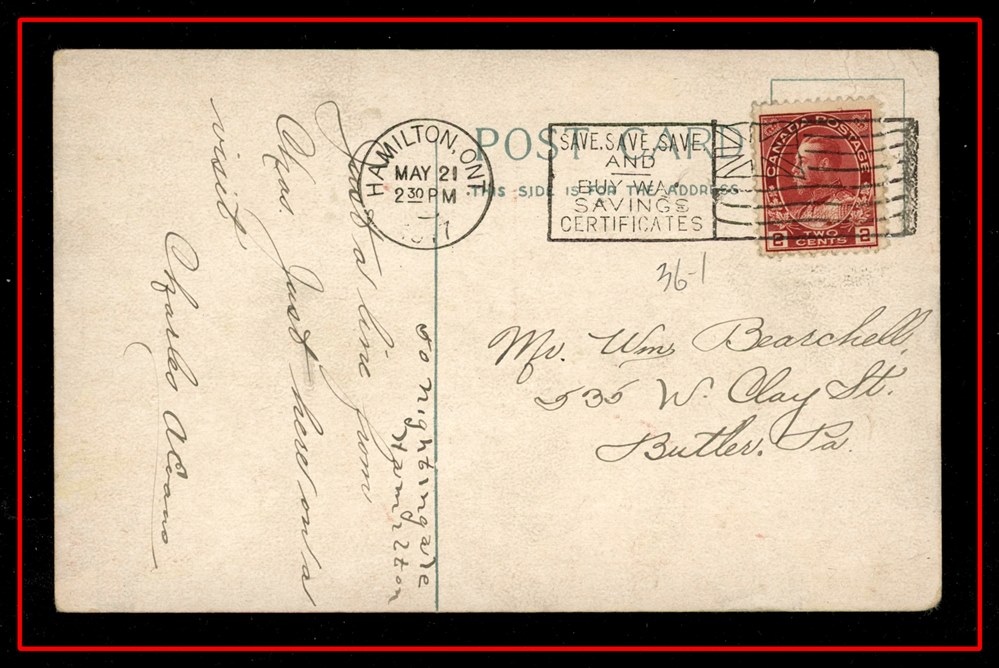 POST CARD
THIS SIDE IS FOR THE ADDRESS
HAMILTON, ONT
MAY 21
2 30 PM
SAVE. SAVE. SAVE
AND
BUY WAR
SAVINGS
CERTIFICATES
CANADA POSTAGE
2 TWO CENTS 2
36-1
Mr. Wm Bearchell,
535 W. Clay St.
Butler. Pa.
Just a line from
Chas. Just here on a
visit
Charles A
to nightingale
Hamilton